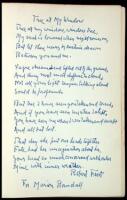 Tree at My Window
Tree at my window, window tree,
My sash is lowered when night comes on;
But let there never be curtain drawn
Between you and me.
Vague dream-head lifted out of the ground,
And thing next most diffuse to cloud,
Not all your light tongues talking aloud
Could be profound.
But tree, I have seen you taken and tossed,
And if you have seen me when I slept,
You have seen me when I was taken and swept
And all but lost.
That day she put our heads together,
Fate had her imagination about her,
Your head so much concerned with outer
Mine with inner weather.
Robert Frost
For Marion